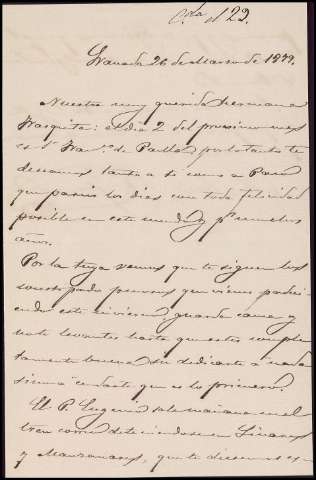 Cta nº 129.
Granada 26 de Marzo de 1899.
Nuestra muy querida hermana
Frasquita: el dia 2 del proximo mes
es Sn Franco de Paula, por lo tanto te
deseamos tanto a ti como a Paco
que paseis los dias con toda felicidad
posible en este mundo y pr muchos
años.
Por la tuya vemos que te siguen los
constipados
que vienes padeci-
endo este invierno, guarda cama y
no te levantes hasta que estes comple-
tamente buena, sin dedicarte a nada
sino a cuidarte que es lo primero.
El P. Eugenio sale mañana en el
tren correo deteniendose en Linares
y Manzanares, que te